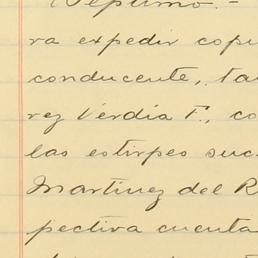 Séptimo.-
ra expedir copi
conducente, ta
rez Verdía F., co
las estirpes suc
Martínez del R
pectiva cuenta